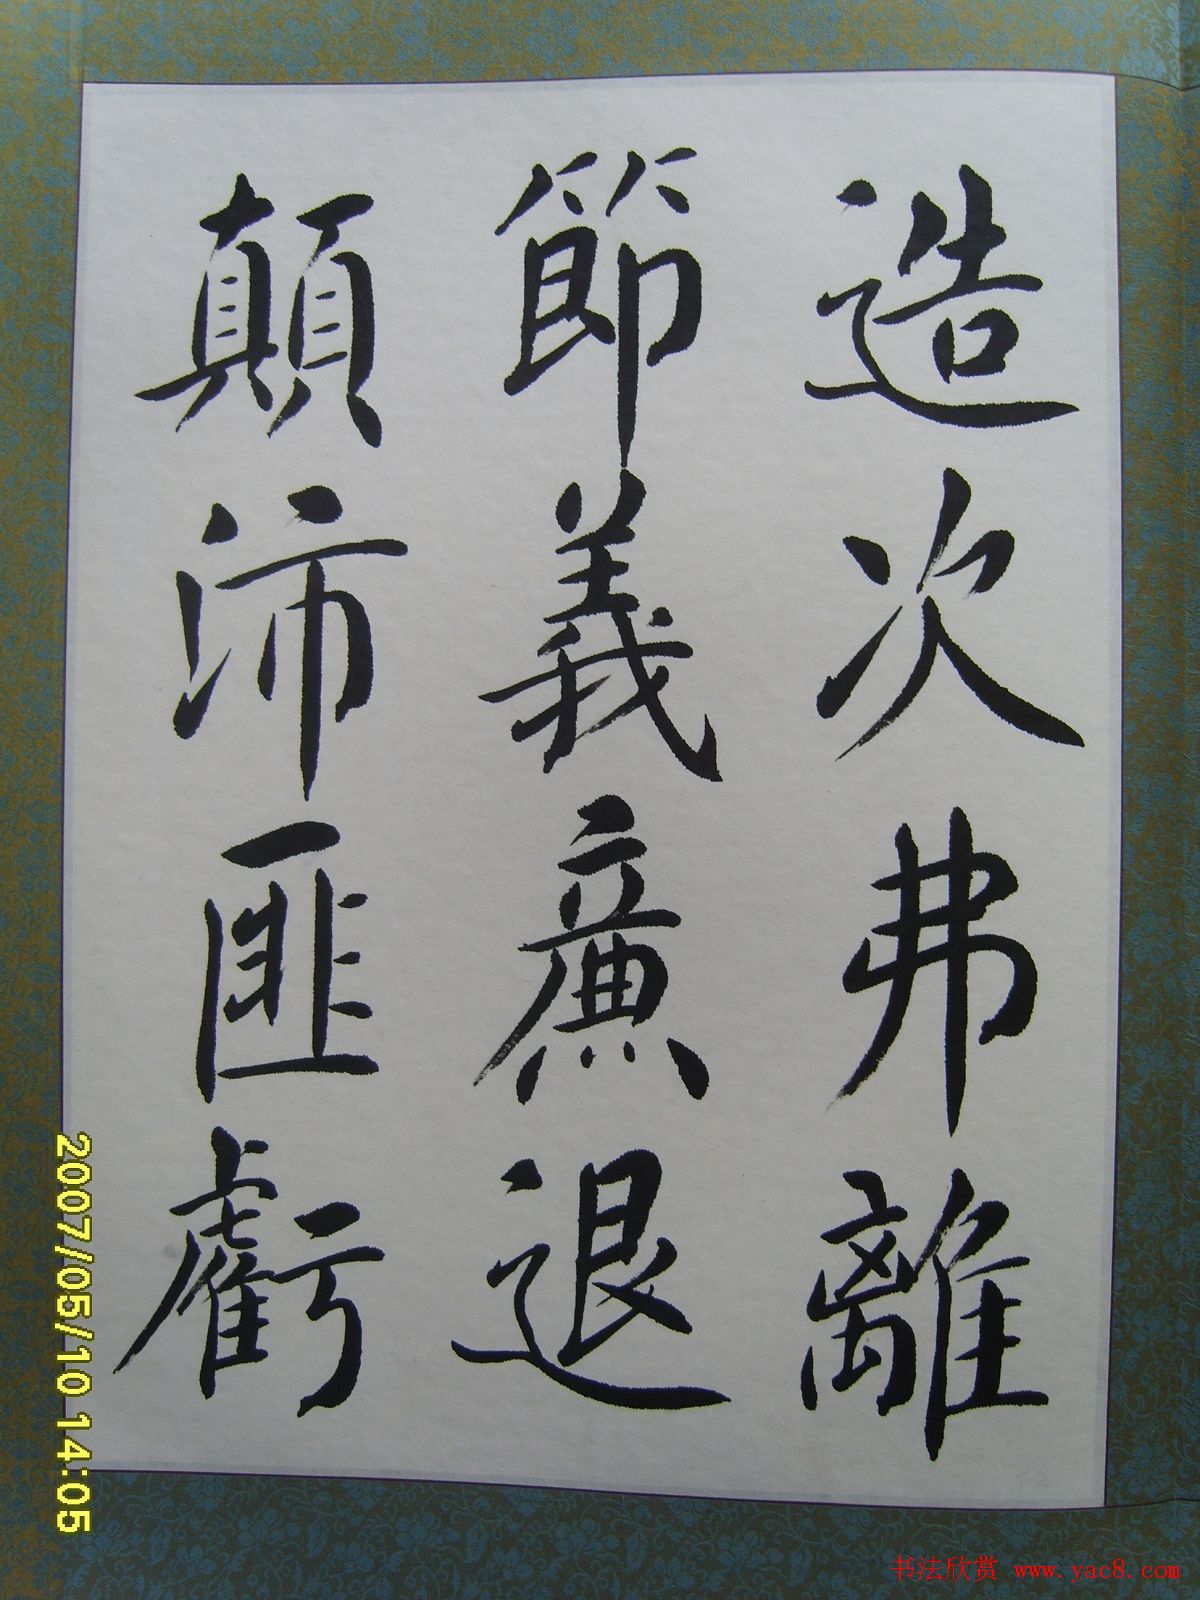 造次弗離
節義廉退
顛沛匪虧
2007/05/10 14:05
书法欣赏 www.yac8.com